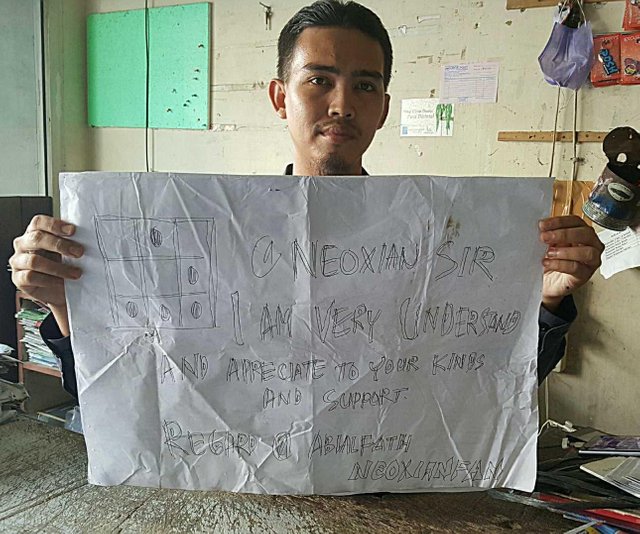 @ NEOXIAN SIR
I AM VERY UNDERSAND
AND APPRECIATE TO YOUR KINDS
AND SUPPORT.
REGARD @ ABUALFATH
NEOXIANFAN